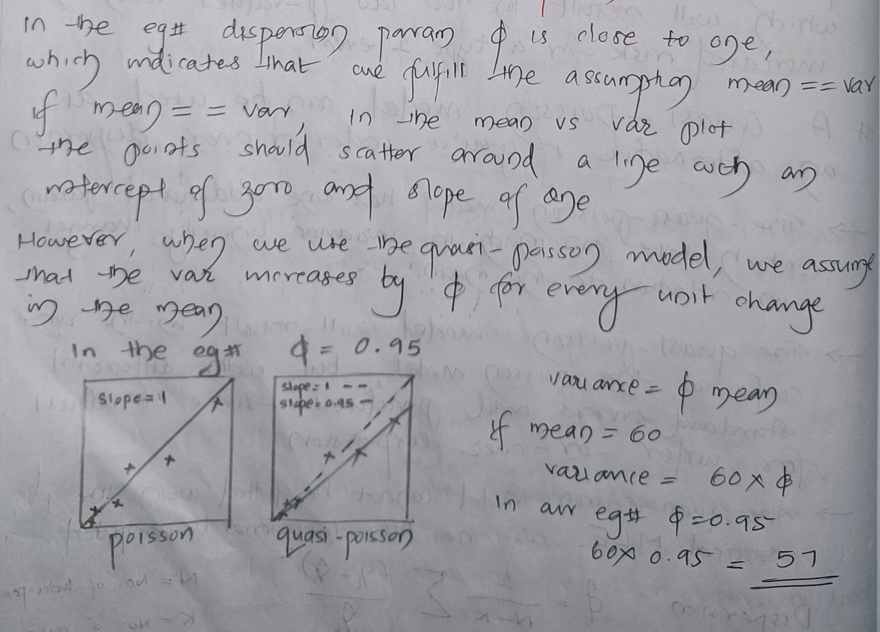 In the eg# dispersion param ϕ is close to one,
which indicates that we fulfill the assumption mean == var
if mean == var, in the mean vs var plot
the points should scatter around a line with an
intercept of zero and slope of one
However, when we use the quasi-poisson model, we assume
that the var increases by ϕ for every unit change
in the mean
In the eg# ϕ = 0.95
slope=1
poisson
slope=1 --
slope=0.95 -
quasi-poisson
variance = ϕ mean
if mean = 60
variance = 60 x ϕ
In our eg# ϕ=0.95
60x 0.95 = 57